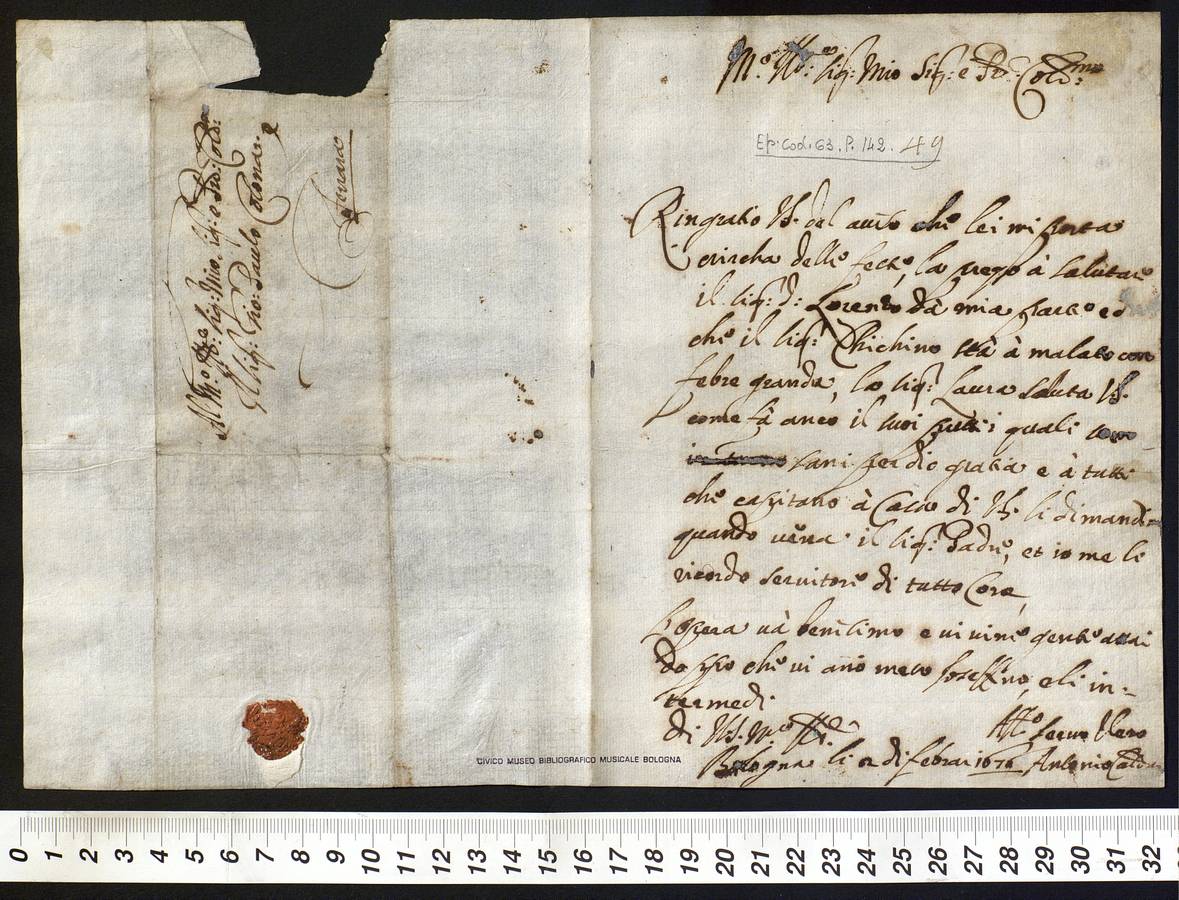 Al M.to Ill.re Sig: Mio Sig: e Pro: Coll:mo
Il Sig: Gio: Paulo Colonna.
Ferrara
M.o Ill.re Sig: Mio Sig: e Pro: Coll:mo
Ep. Cod. 63. P. 142. 49
Ringratio VS. del auiso che lei mi porta
circha delle feste, la prego à salutare
il Sig: D: Lorenzo da mia parte ed
che il Sig: Chichino stà à malato con
febre grande, la Sig: Laura saluta VS.
come fà anco il suoi putti i quali sono
sani per dio gratia e à tutti
che capitano à Casa di VS. li dimand-
quando uèna il Sig: Padre, et io me li
ricordo seruitore di tutto Core,
L'opera uà benissimo e ui viene gente assai
do ppo che ui ano meso Joseffino, e li in-
termedi
di VS. M.to Ill.re
Aff.o seruo Vero
Bologna li 2 di febrai 1676 Antonio
CIVICO MUSEO BIBLIOGRAFICO MUSICALE BOLOGNA
0 1 2 3 4 5 6 7 8 9 10 11 12 13 14 15 16 17 18 19 20 21 22 23 24 25 26 27 28 29 30 31 32